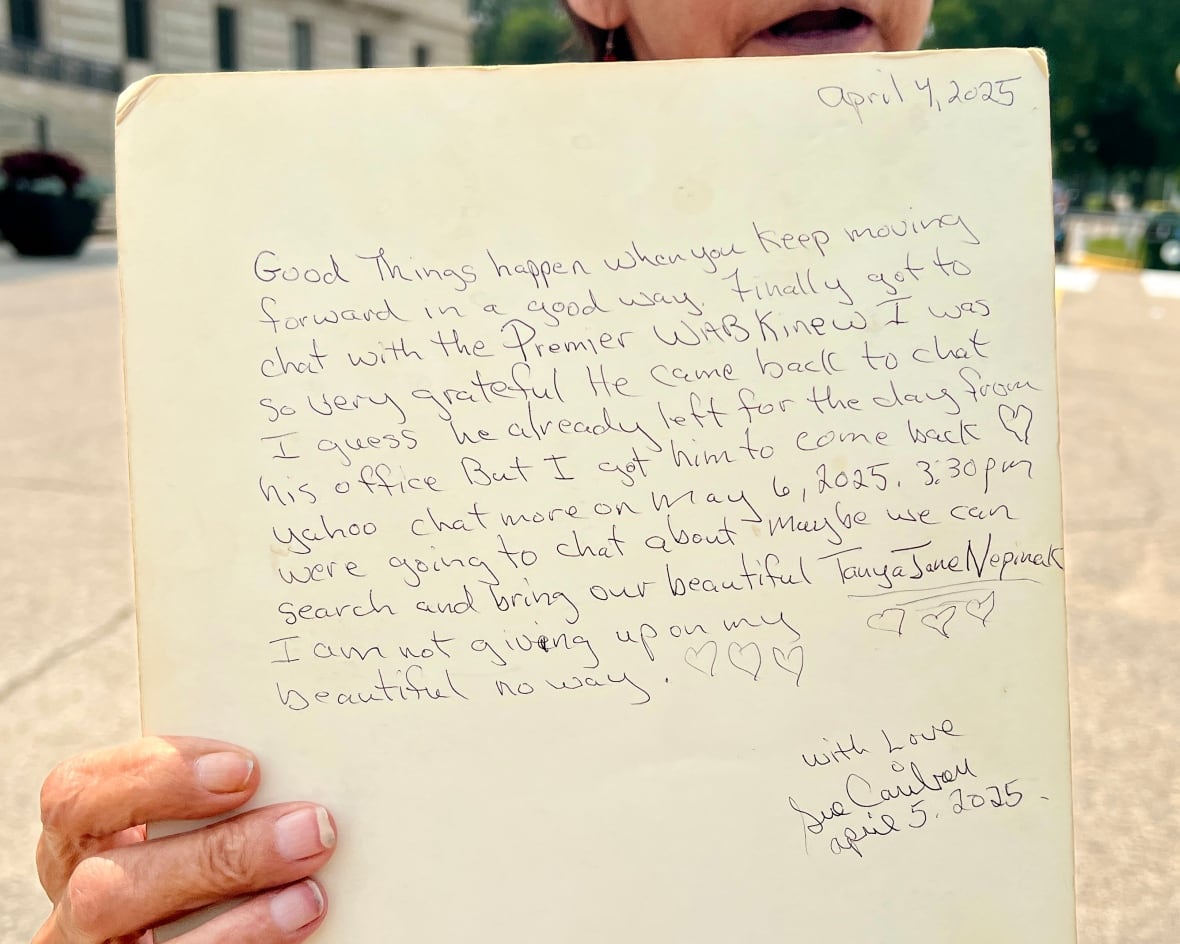 april 4, 2025
Good Things happen when you keep moving
forward in a good way. Finally got to
chat with the Premier WAB Kinew I was
so very grateful He came back to chat
I guess he already left for the day from
his office But I got him to come back ♡
yahoo chat more on may 6, 2025. 3:30pm
were going to chat about maybe we can
search and bring our beautiful Tanya Jane Nepinak
I am not giving up on my ♡♡♡
beautiful no way. ♡♡♡
with Love
Sue Caribou
april 5. 2025.